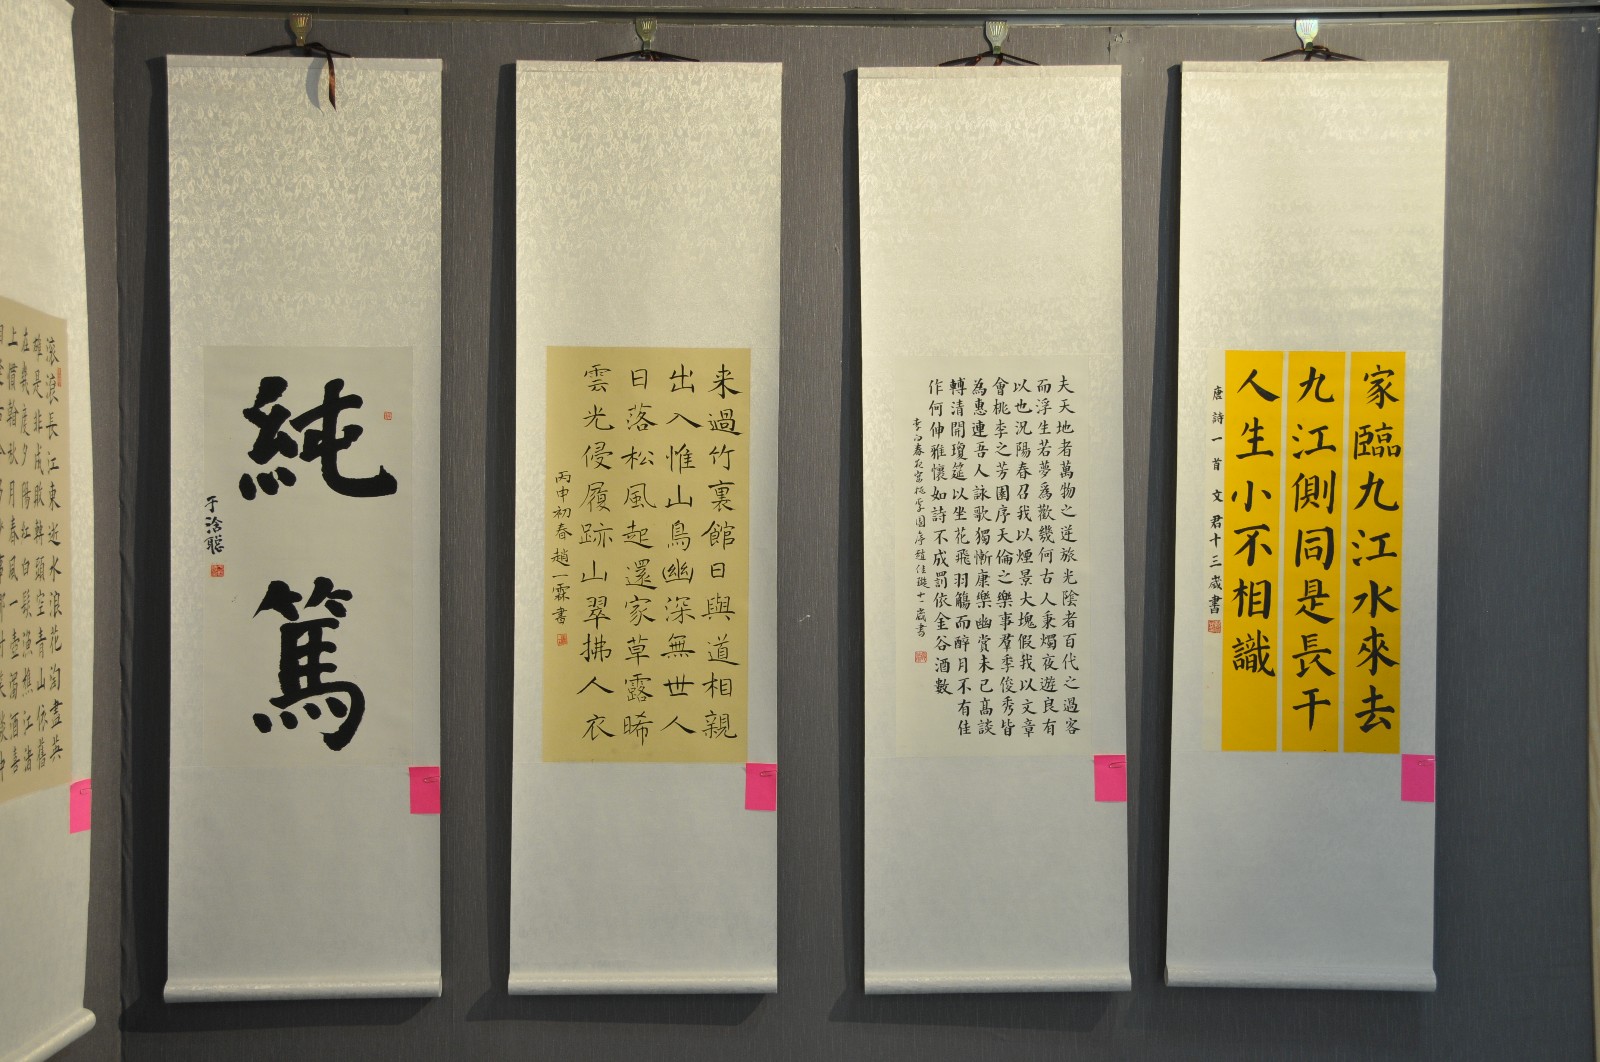 家臨九江水來去
九江側同是長干
人生小不相識
唐詩一首 文君十三歲書
夫天地者萬物之逆旅光陰者百代之過客
而浮生若夢爲歡幾何古人秉燭夜遊良有
以也況陽春召我以煙景大塊假我以文章
會桃李之芳園序天倫之樂事羣季俊秀皆
為惠連吾人詠歌獨慚康樂幽賞未已高談
轉清開瓊筵以坐花飛羽觴而醉月不有佳
作何伸雅懷如詩不成罰依金谷酒數
李白春夜宴桃李園序趙佳璇十一歲書
来過竹裏館日與道相親
出入惟山鳥幽深無世人
日落松風起還家草露晞
雲光侵履跡山翠拂人衣
丙申初春趙一霖書
純
篤
于浛聰
滾滾長江東逝水浪花淘盡英
雄是非成敗轉頭空青山依舊
在幾度夕陽紅白髮漁樵江渚
上慣看秋月春風一壺濁酒喜